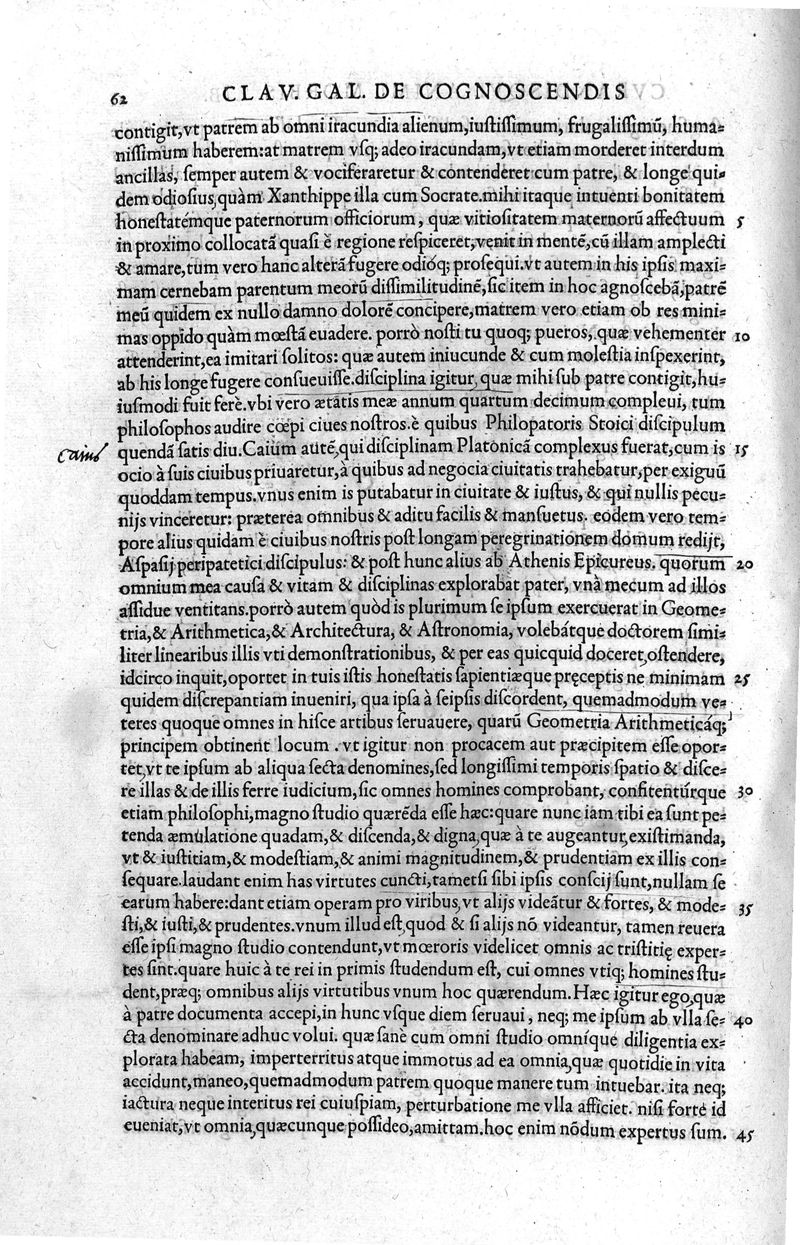 62 CLAV. GAL. DE COGNOSCENDIS
contigit,vt patrem ab omni iracundia alienum,iustissimum, frugalissimũ, huma=
nissimum haberem:at matrem vsq; adeo iracundam,vt etiam morderet interdum
ancillas, semper autem & vociferaretur & contenderet cum patre, & longe qui=
dem odiosius,quàm Xanthippe illa cum Socrate.mihi itaque intuenti bonitatem
honestatémque paternorum officiorum, quæ vitiositatem maternorũ affectuum 5
in proximo collocatã quasi è regione respiceret,venit in mentẽ,cũ illam amplecti
& amare,tum vero hanc alterã fugere odióq; prosequi.vt autem in his ipsis maxi=
mam cernebam parentum meorũ dissimilitudinẽ,sic item in hoc agnoscebã,patrẽ
meũ quidem ex nullo damno dolorẽ concipere,matrem vero etiam ob res mini=
mas oppido quàm mœstã euadere. porrò nosti tu quoq; pueros, quæ vehementer 10
attenderint,ea imitari solitos: quæ autem iniucunde & cum molestia inspexerint,
ab his longe fugere consueuisse.disciplina igitur, quæ mihi sub patre contigit,hu=
iusmodi fuit ferè.vbi vero ætatis meæ annum quartum decimum compleui, tum
philosophos audire cœpi ciues nostros.è quibus Philopatoris Stoici discipulum
quendã satis diu.Caium autẽ,qui disciplinam Platonicã complexus fuerat,cum is 15
Caius
ocio à suis ciuibus priuaretur,à quibus ad negocia ciuitatis trahebatur,per exiguũ
quoddam tempus.vnus enim is putabatur in ciuitate & iustus, & qui nullis pecu=
nijs vinceretur: præterea omnibus & aditu facilis & mansuetus. eodem vero tem=
pore alius quidam è ciuibus nostris post longam peregrinationem domum redijt,
Aspasij peripatetici discipulus: & post hunc alius ab Athenis Epicureus. quorum 20
omnium mea causa & vitam & disciplinas explorabat pater, vnà mecum ad illos
assidue ventitans.porrò autem quòd is plurimum se ipsum exercuerat in Geome=
tria,& Arithmetica,& Architectura, & Astronomia, volebátque doctorem simi=
liter linearibus illis vti demonstrationibus, & per eas quicquid doceret,ostendere,
idcirco inquit,oportet in tuis istis honestatis sapientiæque pręceptis ne minimam 25
quidem discrepantiam inueniri, qua ipsa à seipsis discordent, quemadmodum ve=
teres quoque omnes in hisce artibus seruauere, quarũ Geometria Arithmeticáq;
principem obtinent locum . vt igitur non procacem aut præcipitem esse opor=
tet,vt te ipsum ab aliqua secta denomines,sed longissimi temporis spatio & disce=
re illas & de illis ferre iudicium,sic omnes homines comprobant, confitentúrque 30
etiam philosophi,magno studio quærẽda esse hæc:quare nunc iam tibi ea sunt pe=
tenda æmulatione quadam,& discenda,& digna,quæ à te augeantur,existimanda,
vt & iustitiam,& modestiam,& animi magnitudinem,& prudentiam ex illis con=
sequare.laudant enim has virtutes cuncti,tametsi sibi ipsis conscij sunt,nullam se
earum habere:dant etiam operam pro viribus,vt alijs videãtur & fortes, & mode= 35
sti,& iusti,& prudentes.vnum illud est,quod & si alijs nõ videantur, tamen reuera
esse ipsi magno studio contendunt,vt mœroris videlicet omnis ac tristitię exper=
tes sint.quare huic à te rei in primis studendum est, cui omnes vtiq; homines stu=
dent,præq; omnibus alijs virtutibus vnum hoc quærendum.Hæc igitur ego,quæ
à patre documenta accepi,in hunc vsque diem seruaui, neq; me ipsum ab vlla se= 40
cta denominare adhuc volui. quæ sanè cum omni studio omníque diligentia ex=
plorata habeam, imperterritus atque immotus ad ea omnia,quæ quotidie in vita
accidunt,maneo,quemadmodum patrem quoque manere tum intuebar. ita neq;
iactura neque interitus rei cuiuspiam, perturbatione me vlla afficiet. nisi fortè id
eueniat,vt omnia,quæcunque possideo,amittam.hoc enim nõdum expertus sum. 45